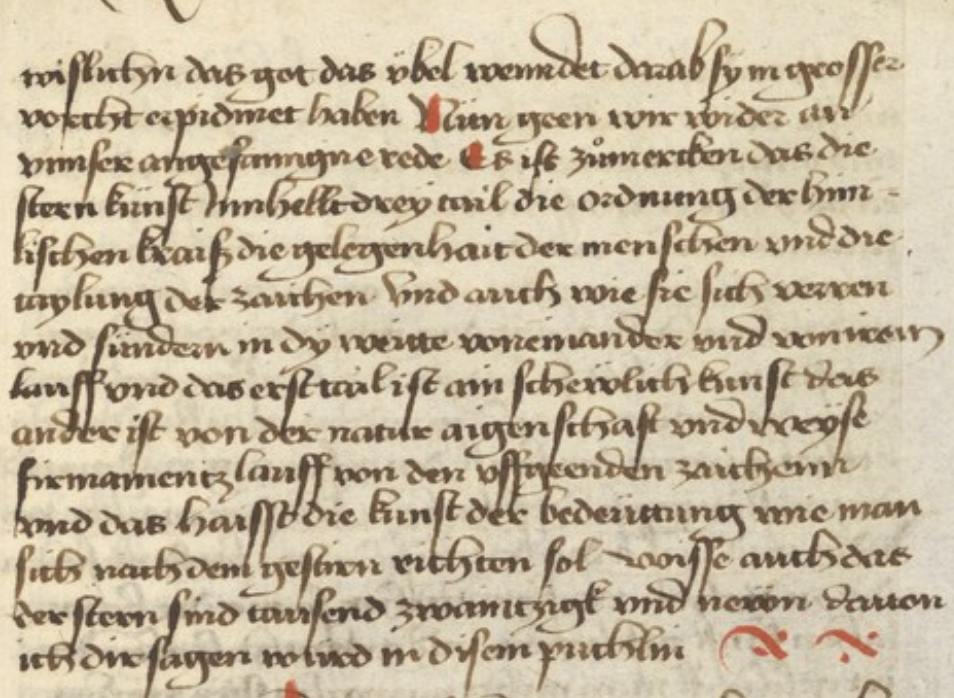 wislichn das got das vbel wenndet darab sy in grosser
vorcht erpidmet haben Nun geen wir wider an
vnnser angefanngne rede Es ist zůmercken das die
stern kunst Innhellt drey tail die ordnung der him-
lischen kraiß die gelegenhait der menschen vnd die
taylung der zaichen Vnd auch wie sie sich verren
vnd sündern in dy weitte voneinander vnd von irem
lauff vnd das erst tail ist ain scheinlich kunst das
ander ist von der natur aigenschaft vnd weyse
firmamentz lauff von den vffgeenden zaichenn
vnd das haisst die kunst der bedeuttung wie man
sich nach dem gestirn richten sol wisse auch das
der stern sind tausend zwaintzigk vnd newn dauon
ich dir sagen wurd in disem puchlin